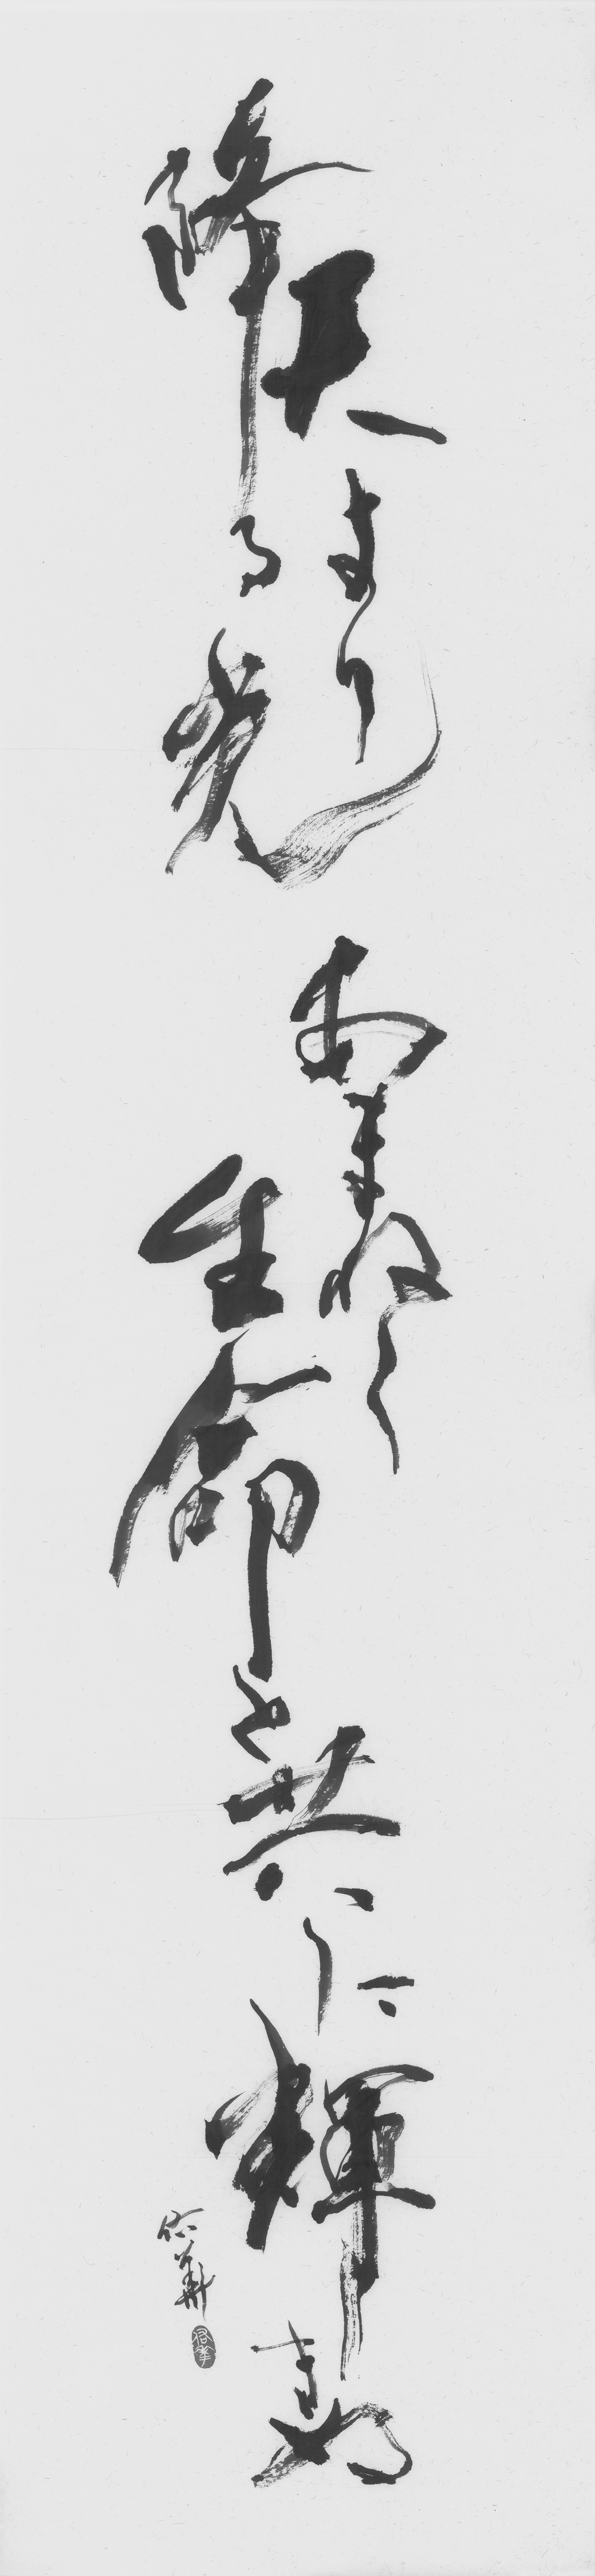 天より
降る光
あまねく
生命と共に輝きぬ
佑華